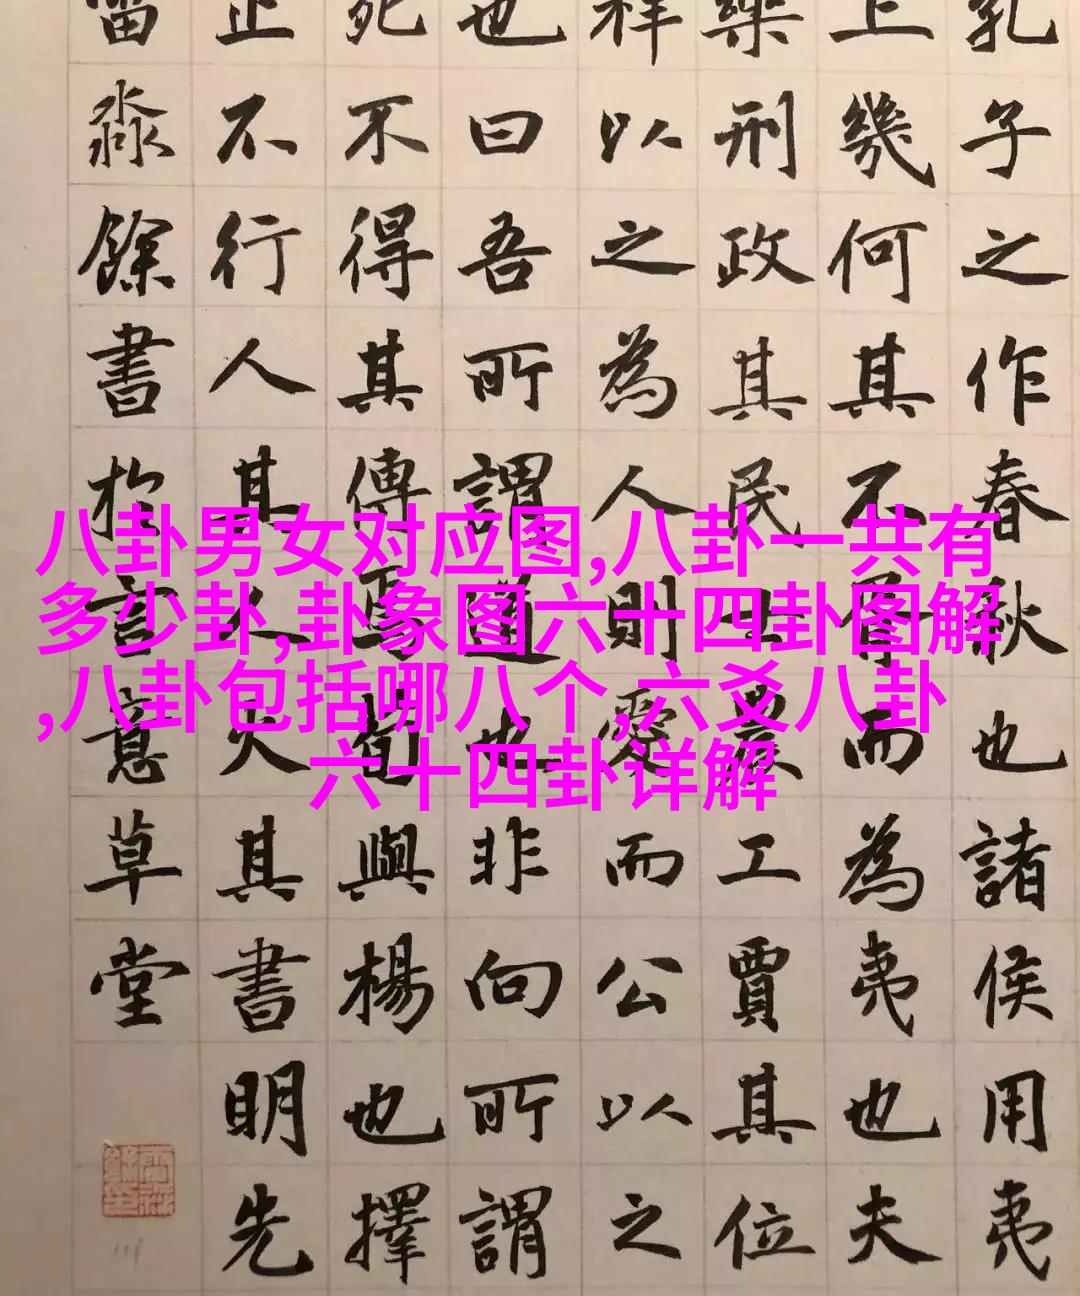 孔子之作春秋也諸侯用夷
上幾何其不胥而為夷也夫
樂刑政其民士農工賈其位
祥以之為人則愛而公以之
也曰吾所謂道也非向所謂
死不得其傳焉荀與楊也擇
止不行人其人火其書明先
淼餘書於言意草堂
八卦男女对应图,八卦一共有
多少卦,卦象图六十四卦图解
,八卦包括哪八个,六爻八卦
六十四卦详解